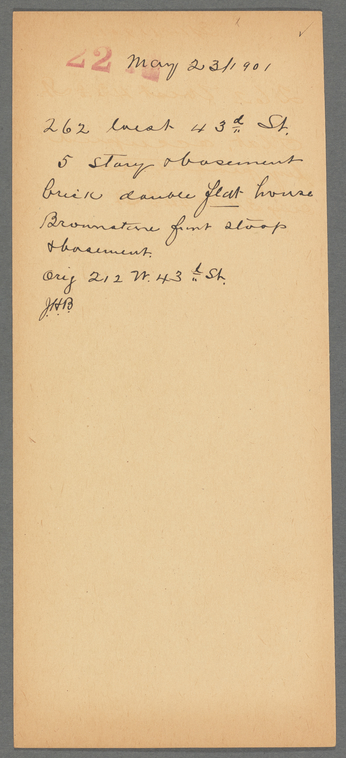 22
May 23/1901
262 West 43d St.
5 story & basement
brick double flat house
Brownstone front stoop
& basement.
Orig 212 W. 43d St.
J.H.B